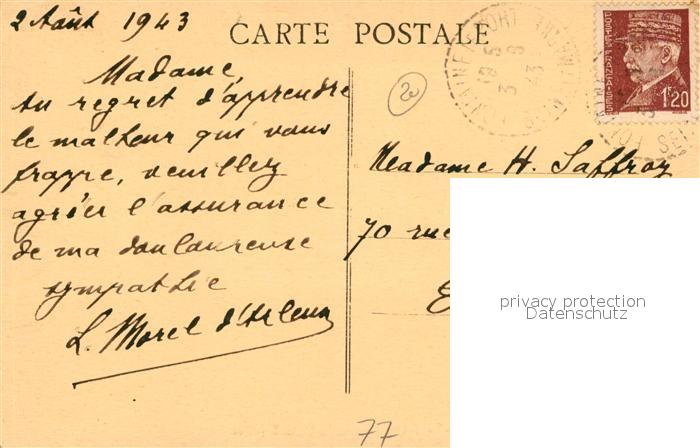 2 Août 1943
CARTE POSTALE
Madame,
au regret d'apprendre
le malheur qui vous
frappe, veuillez
agréer l'assurance
de ma douloureuse
sympathie
L. Morel d'Arleux
20
1.20
Madame H. Saffroy
70 rue
privacy protection
Datenschutz
77